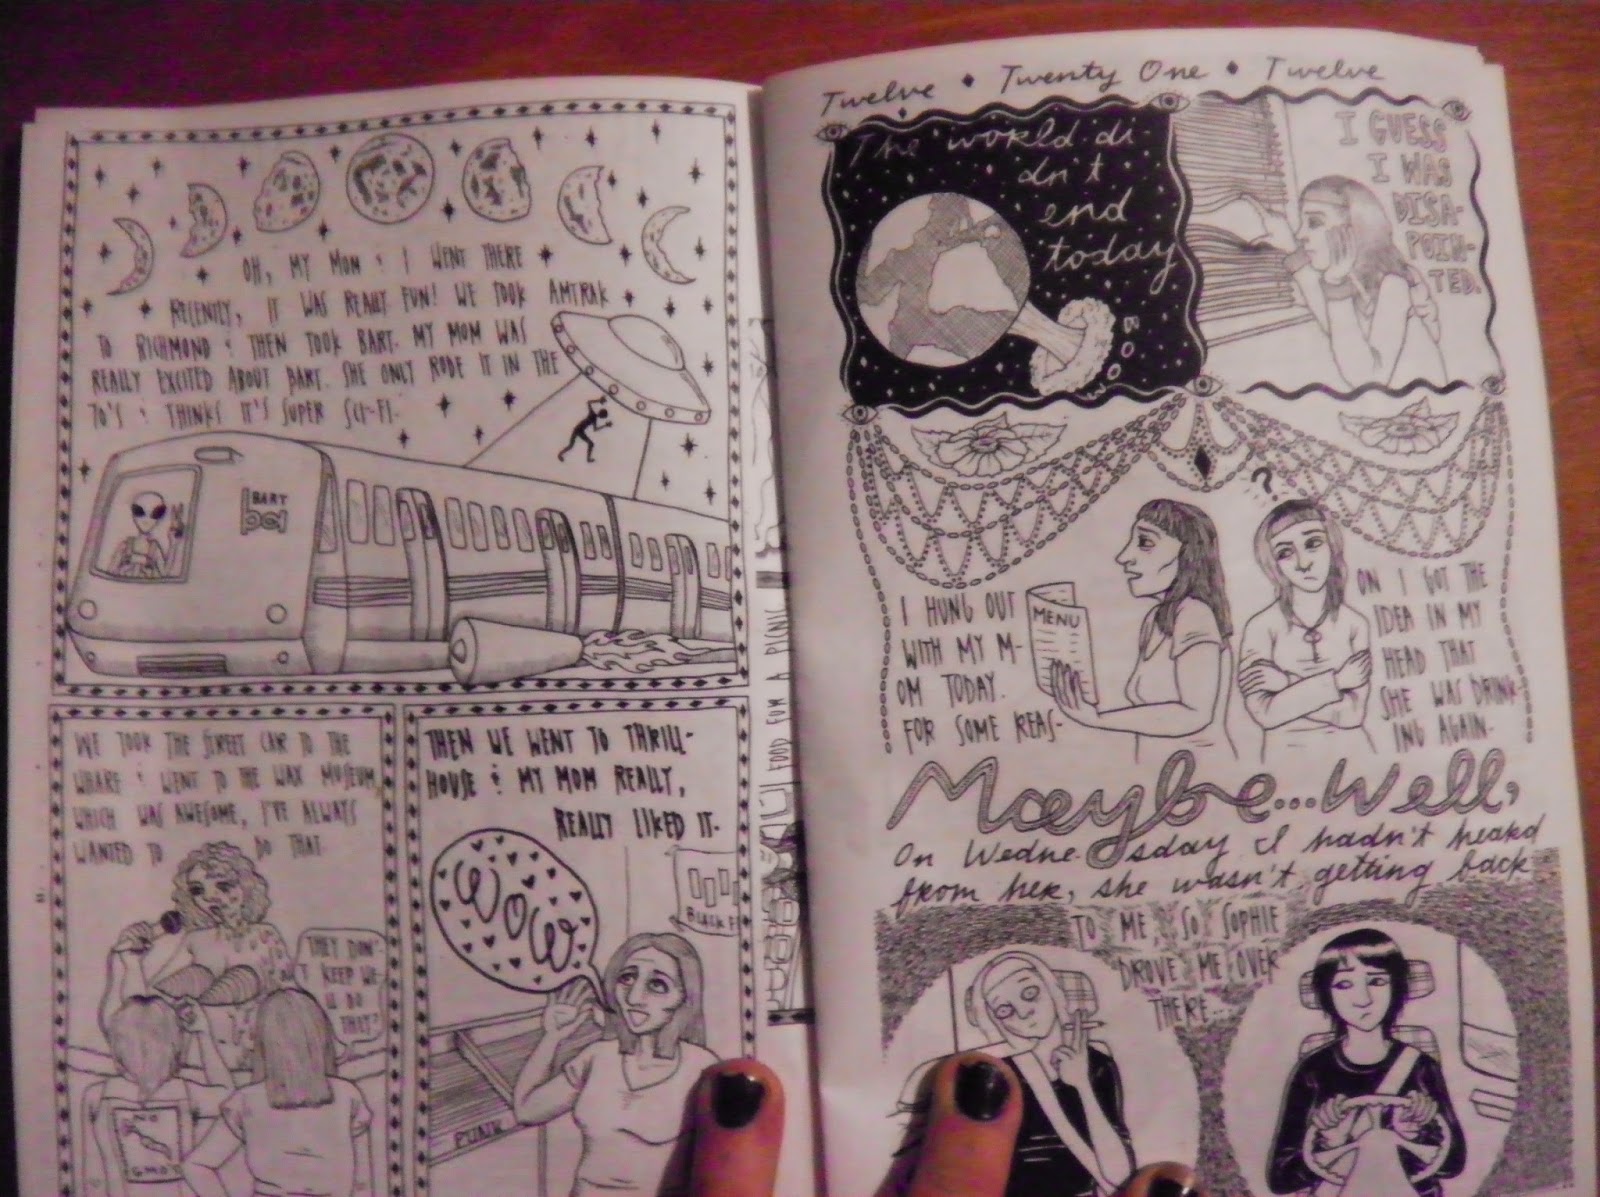 OH, MY MOM & I WENT THERE
RECENTLY, IT WAS REALLY FUN! WE TOOK AMTRAK
TO RICHMOND & THEN TOOK BART. MY MOM WAS
REALLY EXCITED ABOUT BART. SHE ONLY RODE IT IN THE
70'S & THINKS IT'S SUPER SCI-FI.
BART
ba
WE TOOK THE STREET CAR TO THE
WHARF & WENT TO THE WAX MUSEUM,
WHICH WAS AWESOME, I'VE ALWAYS
WANTED TO DO THAT
THEY DON'
T KEEP WE-
LL DO
THEY?
NO
GMO'S
THEN WE WENT TO THRILL-
HOUSE & MY MOM REALLY,
REALLY LIKED IT.
WOW
BLACK F
PUNK
FOOD FOR A PICNIC
Twelve • Twenty One • Twelve
The world di-
dn't
end
today
BOOM
I GUESS
I WAS
DISA-
POIN-
TED.
?
I HUNG OUT
WITH MY M-
OM TODAY.
FOR SOME REAS-
MENU
ON I GOT THE
IDEA IN MY
HEAD THAT
SHE WAS DRINK-
ING AGAIN.
Maybe...Well,
On Wedne-sday I hadn't heard
from her, she wasn't getting back
TO ME, SO SOPHIE
DROVE ME OVER
THERE...